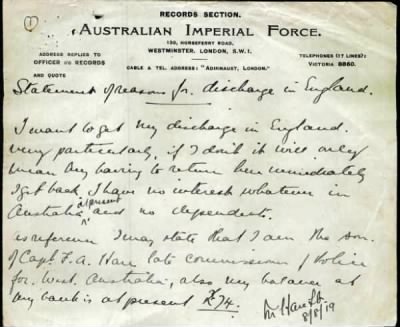 RECORDS SECTION.
AUSTRALIAN IMPERIAL FORCE.
130, HORSEFERRY ROAD,
WESTMINSTER, LONDON, S.W.1.
ADDRESS REPLIES TO
OFFICER i/c RECORDS
AND QUOTE
TELEPHONES (17 LINES):
VICTORIA 8860.
CABLE & TEL. ADDRESS: "ADHINAUST, LONDON."
Statement of reasons for discharge in England.
I want to get my discharge in England.
very particularly, if I don't it will only
mean my having to return here immediately
I get back. I have no interest whatever in
Australia at present and no dependents.
as reference I may state that I am the son
of Capt. F. A. Hare late commissioner of Police
for West. Australia, also my balance at
my bank is at present £74.
Hare
8/8/19